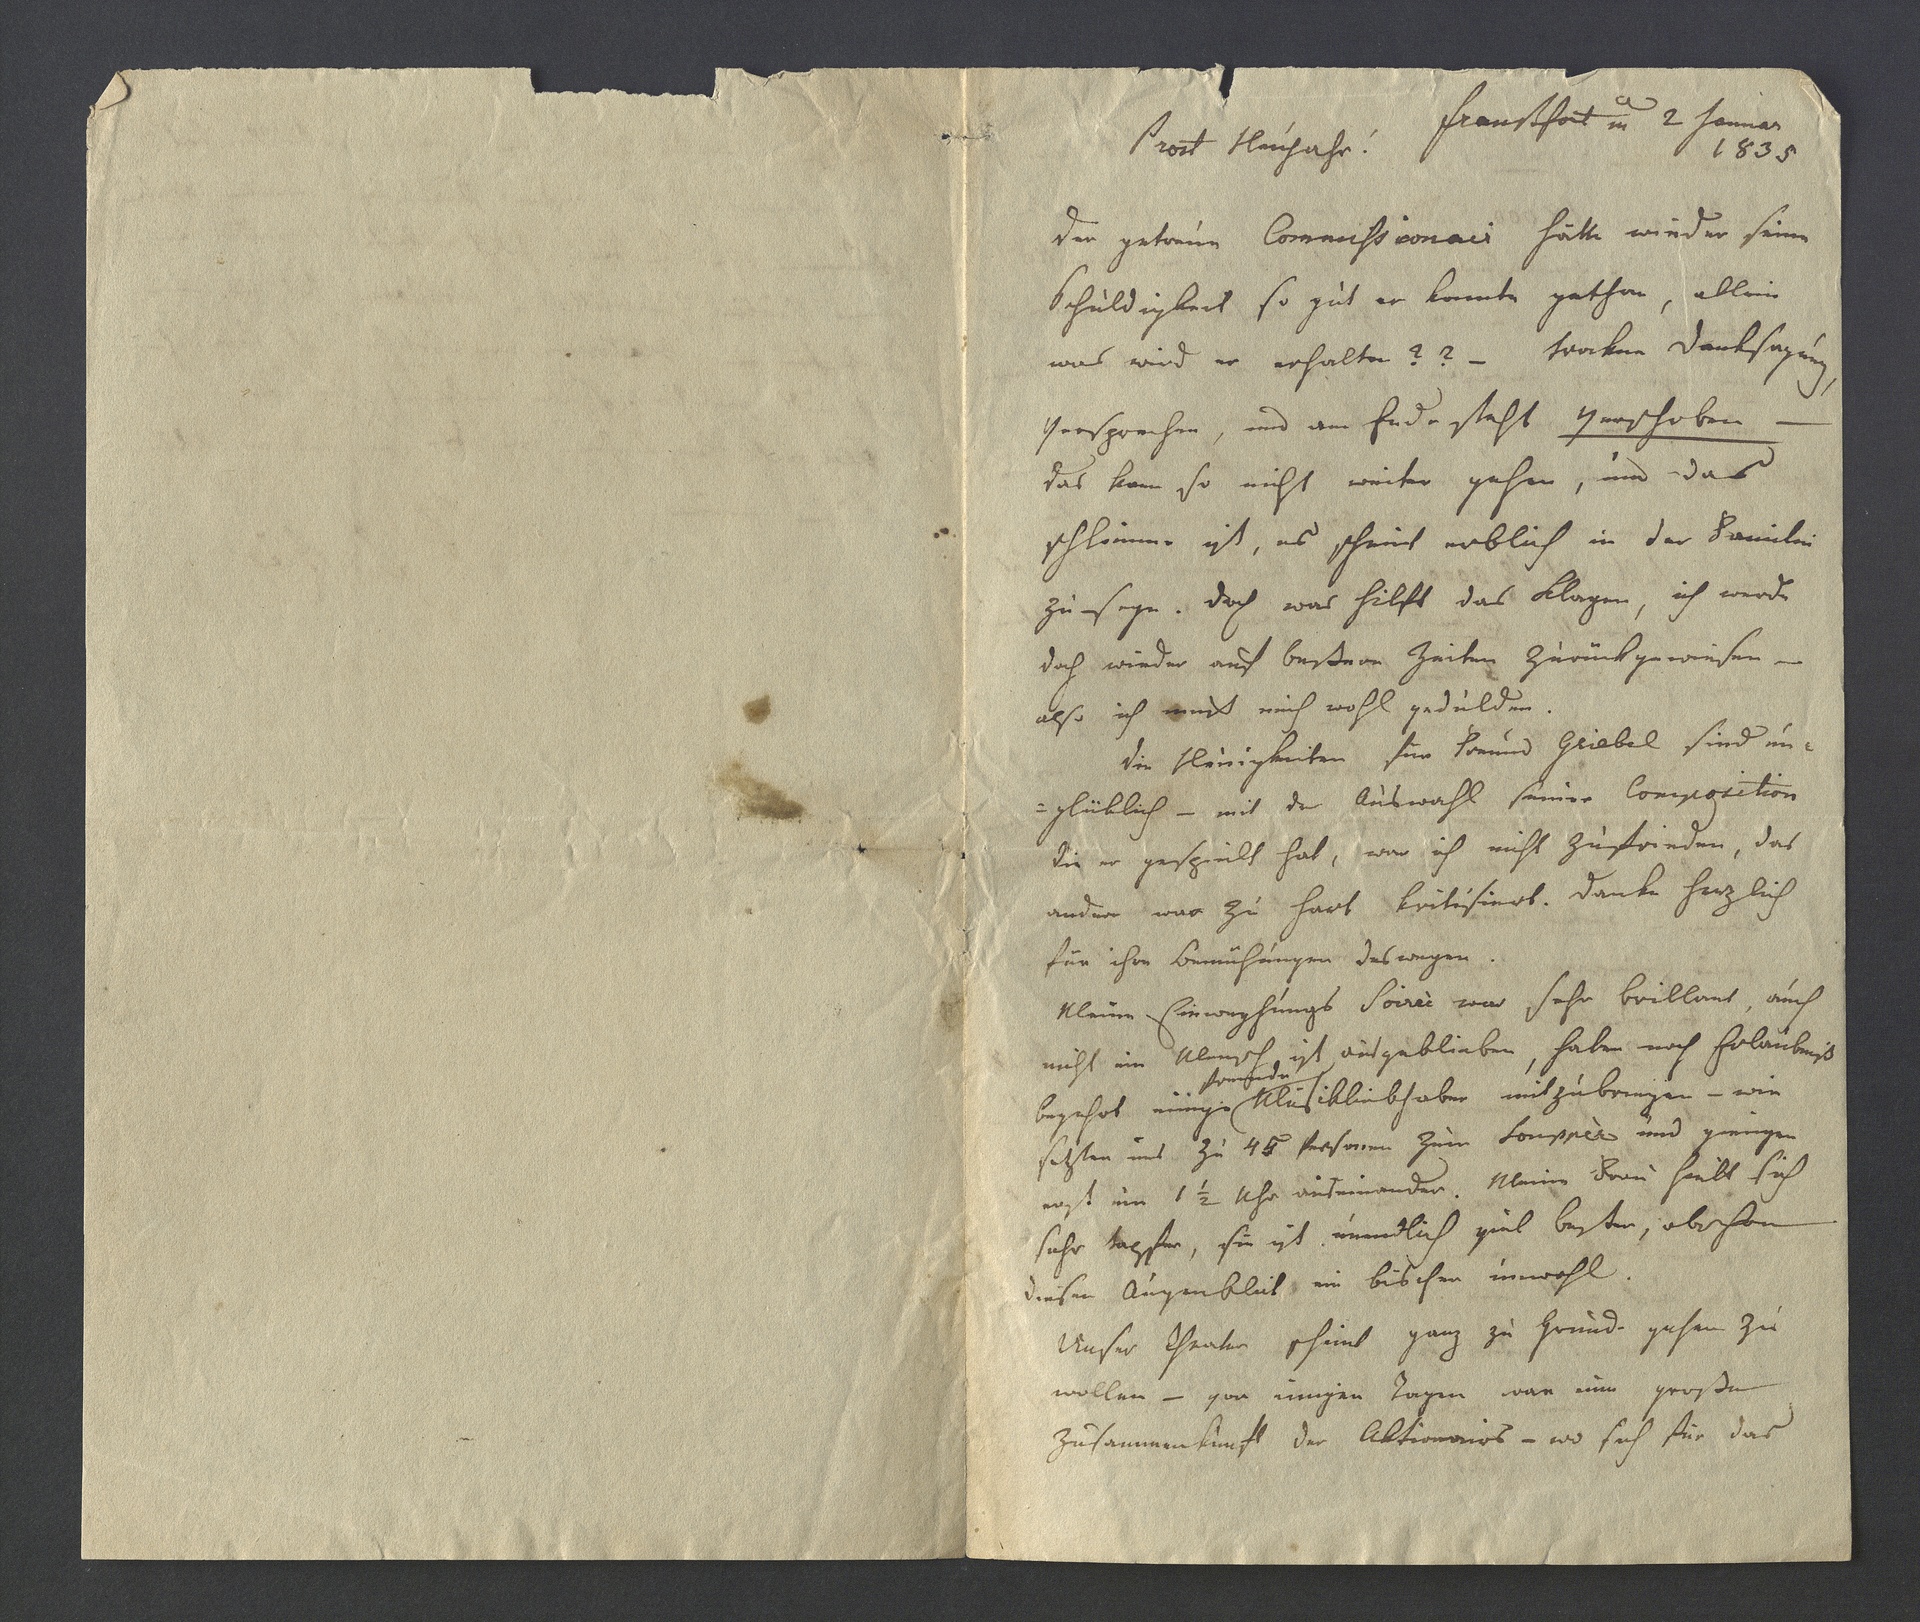 Frankfurt a/m 2 Januar
Prost Neujahr! 1835
Der getreue Commissionair hätte wieder seine
Schuldigkeit so gut er konnte gethan, allein
was wird er erhalten?? – trockne Danksagung,
Versprechen, und am Ende steht verschoben –
das kann so nicht weiter gehen, und das
schlimme ist, es scheint erblich in der Familie
zu seyn. Doch was hilft das Klagen, ich werde
doch wieder auf bessere Zeiten zurückgewiesen –
also ich muß mich wohl gedulden.
Die Neuigkeiten für Freund Griebel sind un=
=glüklich – mit der Auswahl seiner Composition
die er gespielt hat, war ich nicht zufrieden, das
andere war zu hart kritisiert. Danke herzlich
für ihre Bemühungen deswegen.
Meine Einweyhungs Soirée war sehr brillant, auch
nicht ein Mensch ist ausgeblieben, haben noch Erlaubniß
begehrt einige fremde Musikliebhaber mitzubringen – wir
setzten uns zu 45 Personen zum Souppée und giengen
erst um 1½ Uhr auseinander. Meine Frau hielt sich
sehr tapfer, sie ist unendlich viel besser, obschon
diesen Augenblik ein bischen unwohl.
Unser Theater scheint ganz zu Grunde gehen zu
wollen – vor einigen Tagen war eine große
Zusammenkunft der Aktionairs – wo sich für das